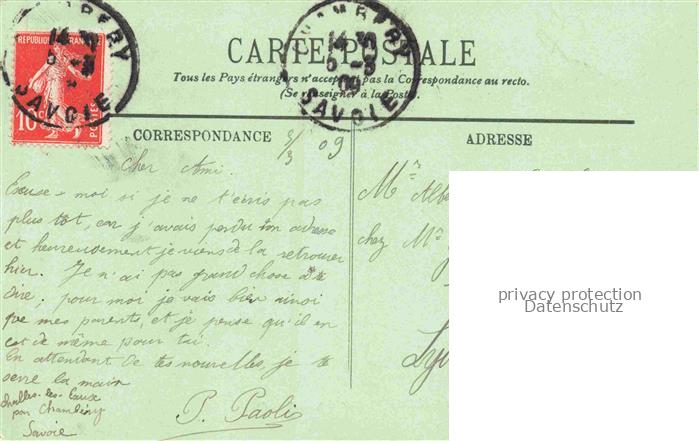 CHAMBERY
14
SAVOIE
REPUBLIQUE FRANCAISE
10
POSTES
CHAMBERY
14
5 - 3
09
SAVOIE
CARTE POSTALE
Tous les Pays étrangers n'acceptent pas la Correspondance au recto.
(Se renseigner à la Poste)
CORRESPONDANCE
3/3 09
Cher Ami.
Excuse-moi si je ne t'écris pas
plus tôt, car j'avais perdu ton adresse
et heureusement je viens de la retrouver
hier. Je n'ai pas grand chose à te
dire; pour moi je vais bien ainsi
que mes parents, et je pense qu'il en
est de même pour toi.
En attendant de tes nouvelles, je te
serre la main
P. Paoli
Challes-les-Eaux
par Chambéry
Savoie
ADRESSE
Mr Albe
chez Mr
Ly
privacy protection
Datenschutz